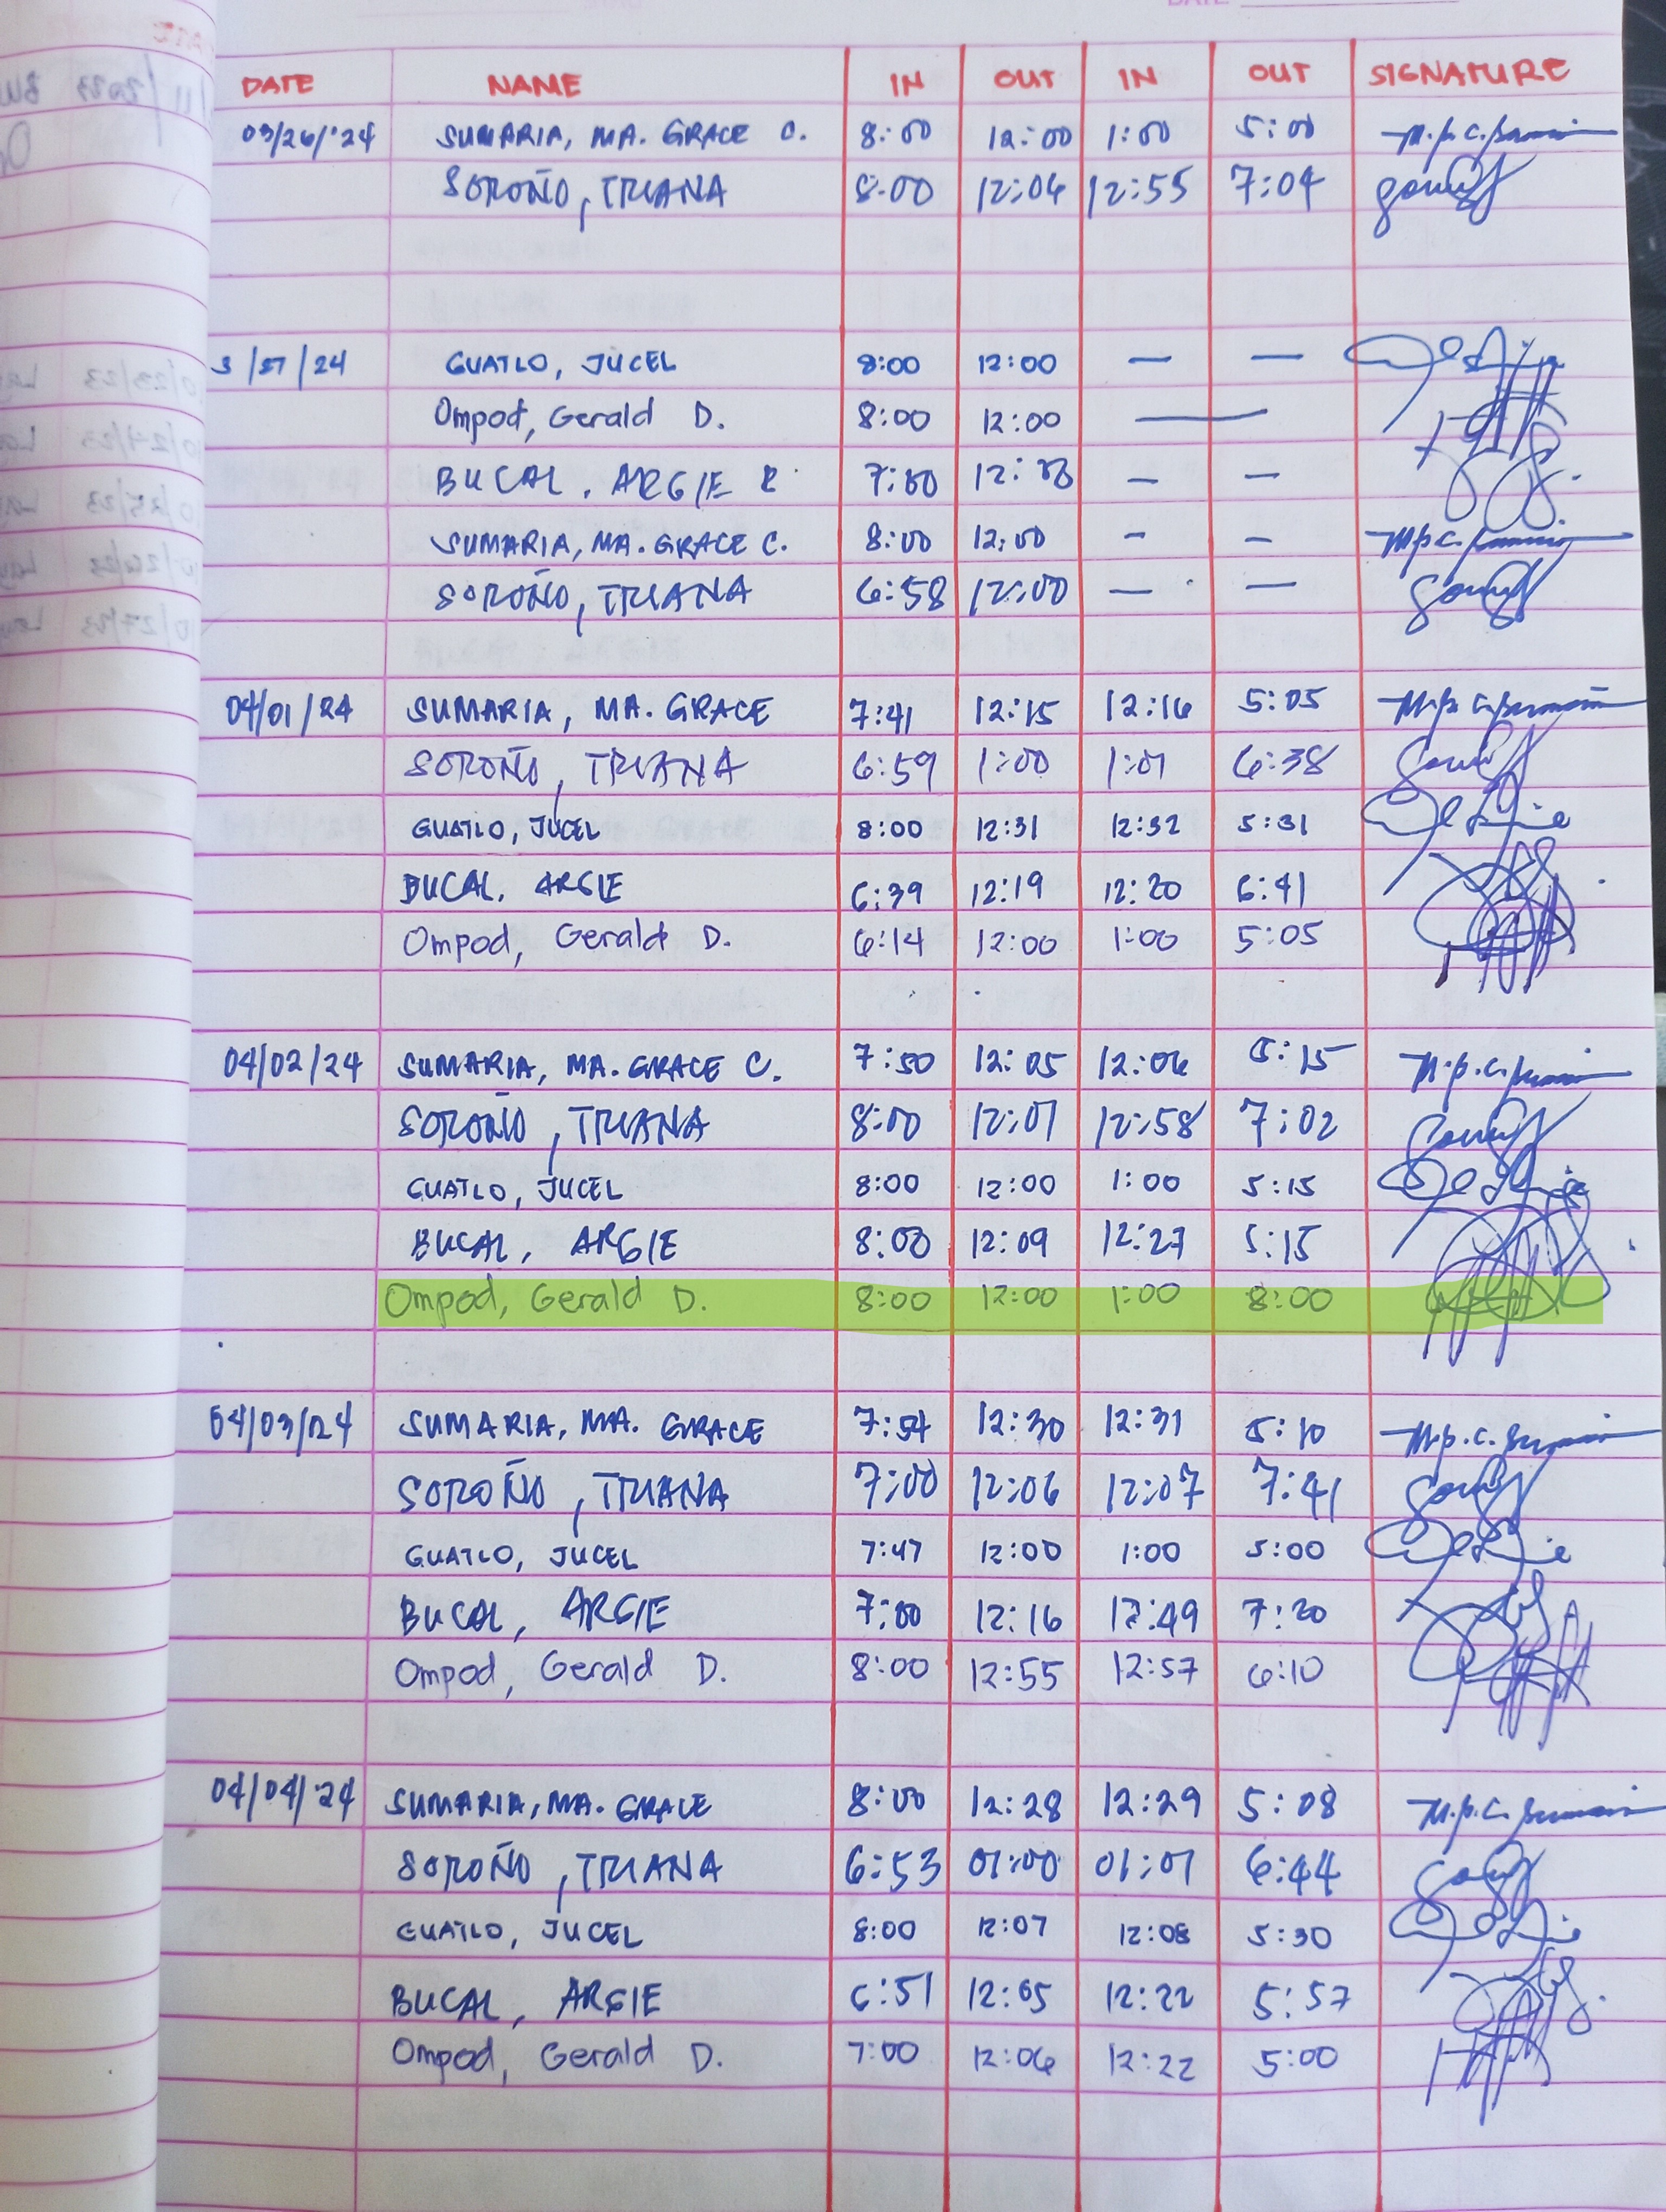 DATE NAME IN OUT IN OUT SIGNATURE
03/26/'24 SUMARIA, MA. GRACE C. 8:00 12:00 1:00 5:00
SOROÑO, TRIANA 8:00 12:04 12:55 7:04
3/27/24 GUATLO, JUCEL 8:00 12:00 — —
Ompod, Gerald D. 8:00 12:00 —
BUCAL, ARGIE R 7:00 12:00 — —
SUMARIA, MA. GRACE C. 8:00 12:00 - -
SOROÑO, TRIANA 6:58 12:00 — —
04/01/24 SUMARIA, MA. GRACE 7:41 12:15 12:16 5:05
SOROÑO, TRIANA 6:59 1:00 1:01 6:38
GUATLO, JUCEL 8:00 12:31 12:32 5:31
BUCAL, ARGIE 6:39 12:19 12:20 6:41
Ompod, Gerald D. 6:14 12:00 1:00 5:05
04/02/24 SUMARIA, MA. GRACE C. 7:50 12:05 12:06 5:15
SOROÑO, TRIANA 8:00 12:01 12:58 7:02
GUATLO, JUCEL 8:00 12:00 1:00 5:15
BUCAL, ARGIE 8:00 12:09 12:27 5:15
Ompod, Gerald D. 8:00 12:00 1:00 8:00
04/03/24 SUMARIA, MA. GRACE 7:54 12:30 12:31 5:10
SOROÑO, TRIANA 7:00 12:06 12:07 7:41
GUATLO, JUCEL 7:47 12:00 1:00 5:00
BUCAL, ARGIE 7:00 12:16 12:49 7:20
Ompod, Gerald D. 8:00 12:55 12:57 6:10
04/04/'24 SUMARIA, MA. GRACE 8:00 12:28 12:29 5:08
SOROÑO, TRIANA 6:53 01:00 01:01 6:44
GUATLO, JUCEL 8:00 12:07 12:08 5:30
BUCAL, ARGIE 6:51 12:05 12:22 5:57
Ompod, Gerald D. 7:00 12:06 12:22 5:00